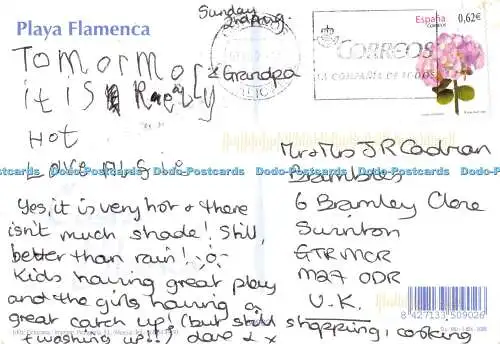 Playa Flamenca
Sunday
2nd Aug.
España
Correos
0,62€
CORREOS
LA COMPAÑÍA DE TODOS
To Mormor
& Grandpa
it is Really
Hot
Love
Yes, it is very hot & there
isn't much shade! Still,
better than rain!
Kids having great play
and the girls having a
great catch up! (but still shopping, cooking
& washing up!!) Love & x
Mr & Mrs J R Cadman
Brambles
6 Bramley Close
Swinton
GTR MCR
M27 0DR
U.K.
8 427133 509026
Dodo-Postcards Dodo-Postcards Dodo-Postcards Dodo-Postcards Dodo-Postcards Dodo-Postcards